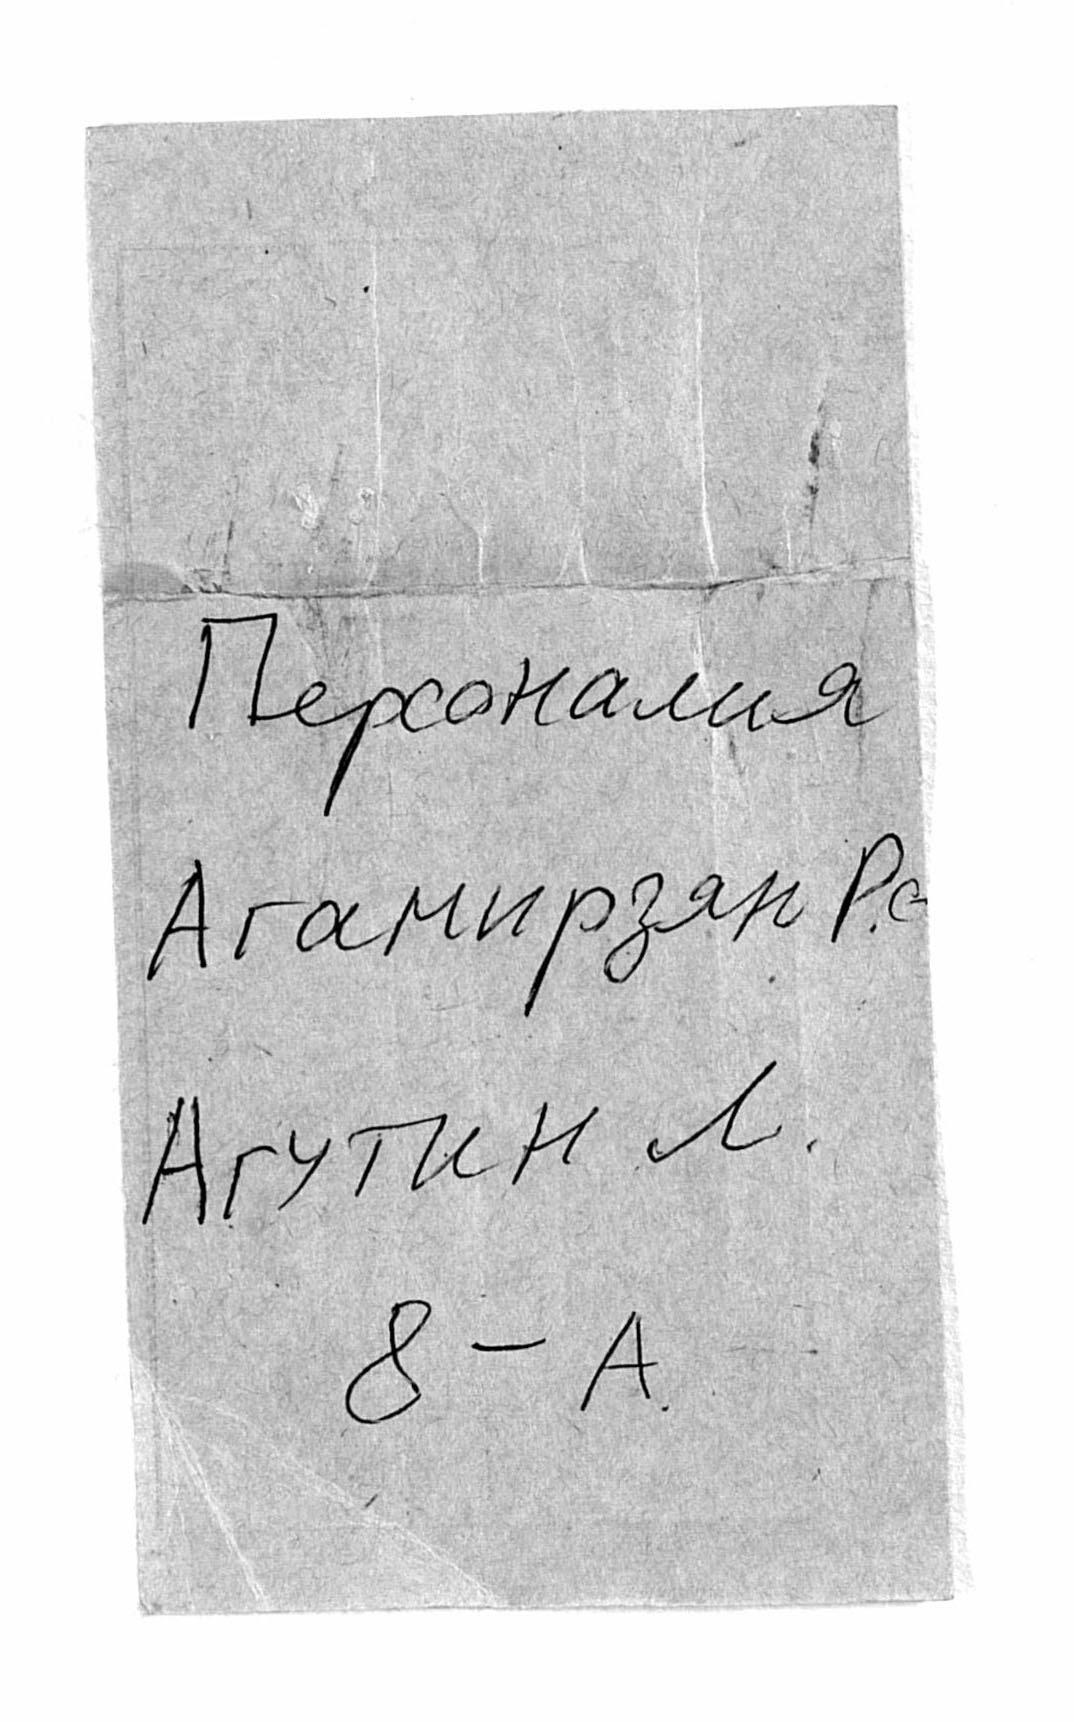 Персоналия
Агамирзян Р.С
Агутин Л.
8 - А.